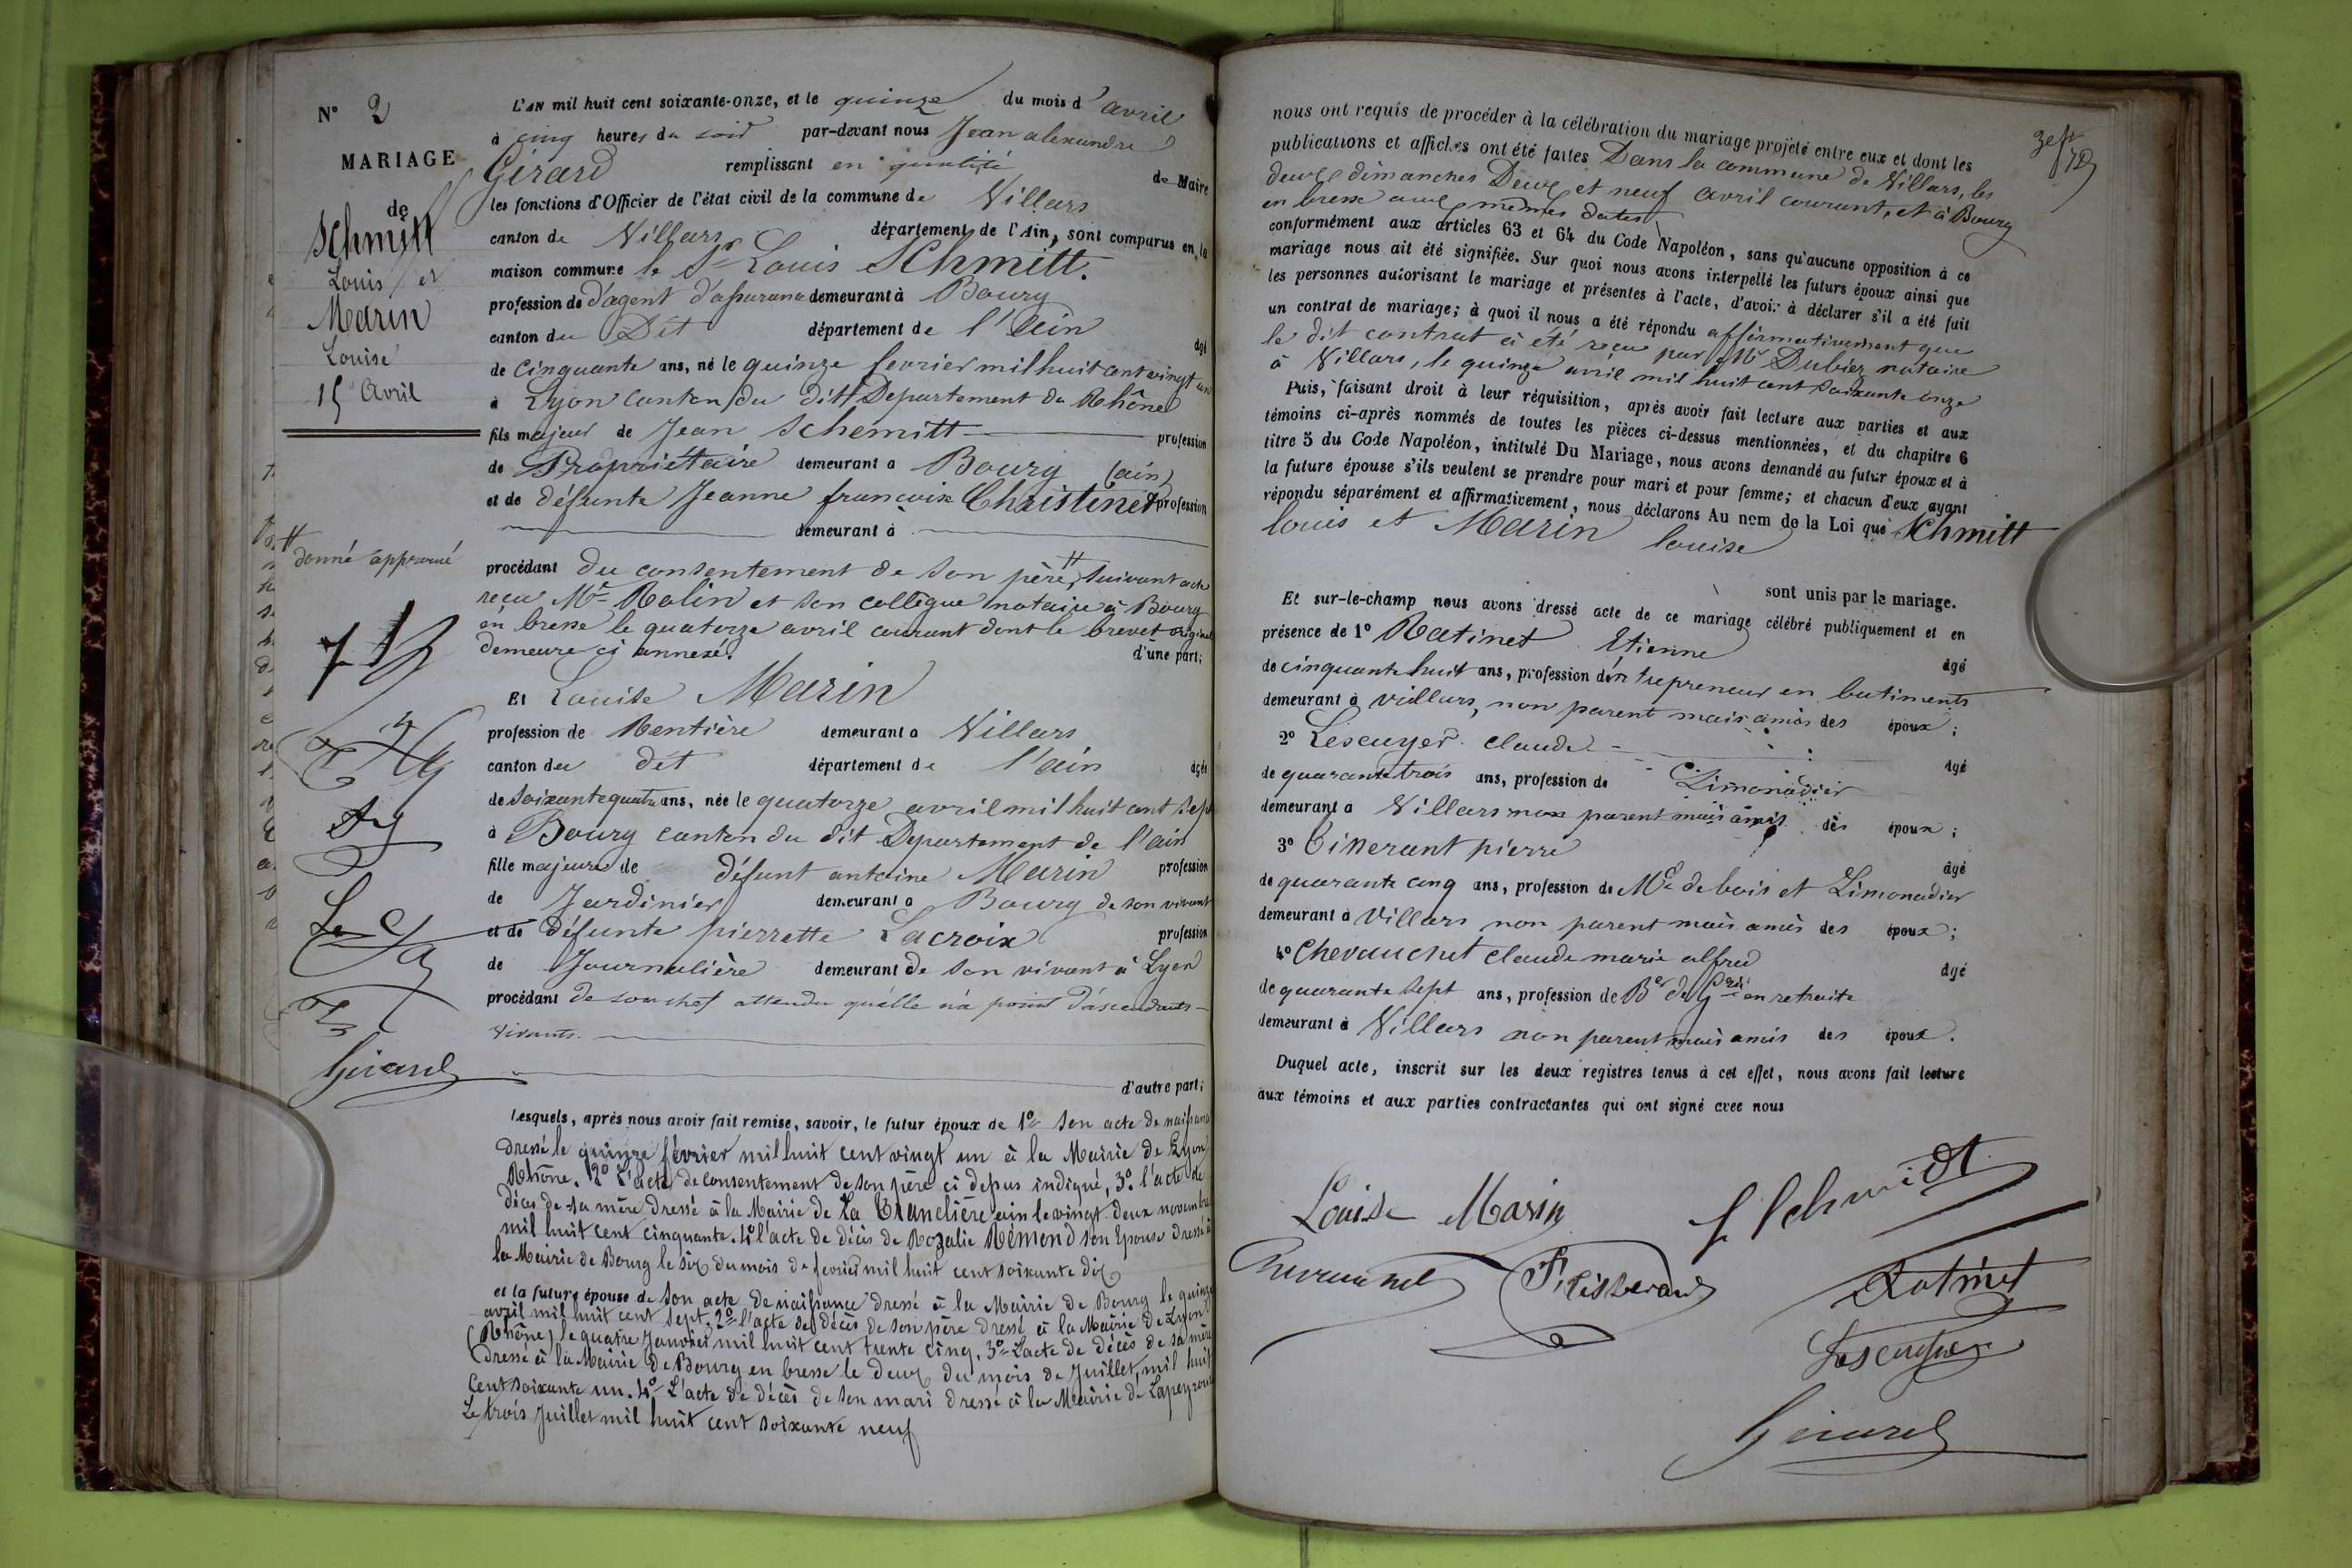 N° 2
MARIAGE
de
Schmitt
Louis et
Marin
Louise
15 Avril
donné approuvé
Girard
L'AN mil huit cent soixante-onze, et le quinze du mois d'avril
à cinq heures du soir par-devant nous Jean alexandre
Girard remplissant en qualité de Maire
les fonctions d'Officier de l'état civil de la commune de Villars
canton de Villars département de l'Ain, sont comparus en la
maison commune le Sr Louis Schmitt.
profession de d'agent d'assurance demeurant à Bourg
canton du Dit département de l'Ain âgé
de cinquante ans, né le quinze fevrier mil huit cent vingt un
à Lyon canton du ditt Departement du Rhône
fils majeur de Jean Schemitt profession
de Propriétaire demeurant a Bourg (ain)
et de défunte Jeanne francoise Christinet profession
demeurant à
procédant du consentement de son père, # suivant acte
recu Me Rolin et son collègue notaire à Bourg
en bresse le quatorze avril courant dont le brevet original
demeure ci annexé. d'une part;
Et Louise Marin
profession de Rentière demeurant a Villars
canton du dit département de l'ain âgée
de soixante quatre ans, née le quatorze avril mil huit cent sept
à Bourg canton du dit Departement de l'ain
fille majeure de défunt antoine Marin profession
de Jardinier demeurant a Bourg de son vivant
et de défunte pierrette Lacroix profession
de Journalière demeurant de son vivant à Lyon
procédant de son chef attendu qu'elle n'a point d'ascendants
vivants.
d'autre part;
Lesquels, après nous avoir fait remise, savoir, le futur époux de 1° son acte de naissance
dressé le quinze février mil huit cent vingt un à la Mairie de Lyon
Rhône. 2° l'acte de consentement de son père ci dessus indiqué, 3° l'acte de
décès de sa mère dressé à la Mairie de La Tranclière ain le vingt deux novembre
mil huit cent cinquante. 4° l'acte de décès de Rozalie Rémond son Epouse dressé à
la Mairie de Bourg le six du mois de fevrier mil huit cent soixante dix
et la future épouse de son acte de naissance dressé à la Mairie de Bourg le quinze
avril mil huit cent sept. 2° l'acte de décès de son père dressé à la Mairie de Lyon
(Rhône) le quatre Janvier mil huit cent trente cinq. 3° L'acte de décès de sa mère
dressé à la Mairie de Bourg en bresse le deux du mois de Juillet, mil huit
cent soixante un. 4° L'acte de décès de son mari dressé à la Mairie de Lapeyrouse
Le trois Juillet mil huit cent soixante neuf
nous ont requis de procéder à la célébration du mariage projeté entre eux et dont les
publications et affiches ont été faites Dans la commune de Villars, les
deux dimanches Deux et neuf avril courant, et à Bourg
en bresse aux mêmes dates
conformément aux articles 63 et 64 du Code Napoléon, sans qu'aucune opposition à ce
mariage nous ait été signifiée. Sur quoi nous avons interpellé les futurs époux ainsi que
les personnes autorisant le mariage et présentes à l'acte, d'avoir à déclarer s'il a été fait
un contrat de mariage; à quoi il nous a été répondu affirmativement que
le dit contrat à été recu par Me Dubiez notaire
à Villars, le quinze avril mil huit cent soixante onze
Puis, faisant droit à leur réquisition, après avoir fait lecture aux parties et aux
témoins ci-après nommés de toutes les pièces ci-dessus mentionnées, et du chapitre 6
titre 5 du Code Napoléon, intitulé Du Mariage, nous avons demandé au futur époux et à
la future épouse s'ils veulent se prendre pour mari et pour femme; et chacun d'eux ayant
répondu séparément et affirmativement, nous déclarons Au nom de la Loi que Schmitt
louis et Marin louise
sont unis par le mariage.
Et sur-le-champ nous avons dressé acte de ce mariage célébré publiquement et en
présence de 1° Ratinet Etienne âgé
de cinquante huit ans, profession d'entrepreneur en batiments
demeurant à villars, non parent mais amis des époux;
2° Lescuyer claude âgé
de quarante trois ans, profession de Limonadier
demeurant a Villars non parent mais amis des époux;
3° Tisserant pierre âgé
de quarante cinq ans, profession de Md de bois et Limonadier
demeurant à Villars non parent mais amis des époux;
4° Chevauchet claude marie alfred âgé
de quarante sept ans, profession de Ber de Grie en retraite
demeurant à Villars non parent mais amis des époux.
Duquel acte, inscrit sur les deux registres tenus à cet effet, nous avons fait lecture
aux témoins et aux parties contractantes qui ont signé avec nous
Louise Marin
L Schmidt
Ratinet
Lescuyer
Girard